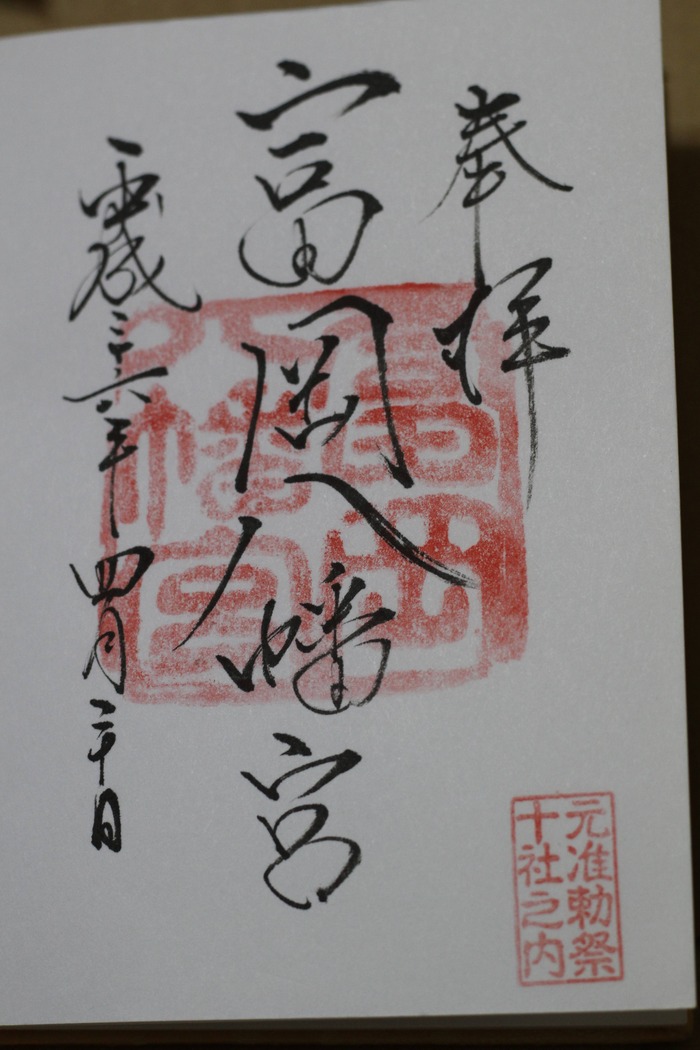 奉拝
富岡八幡宮
平成二十六年四月二十日
富岡
八幡宮
元准勅祭
十社之内